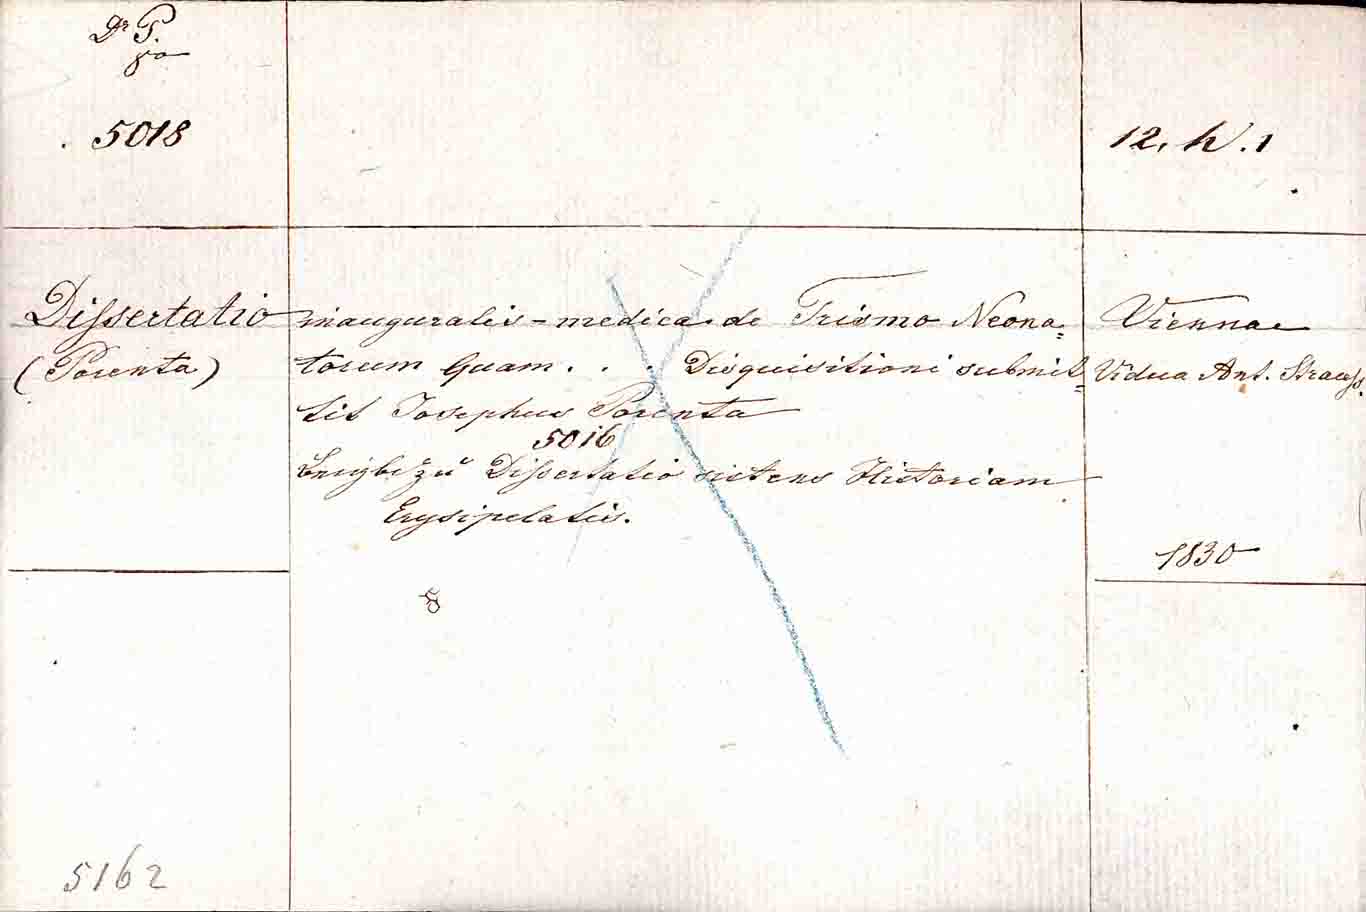 Dr P.
8o
5018
12. h. 1
Dissertatio inauguralis-medica de Trismo Neona= Viennae
(Porenta) torum quam . . . Disquisitioni submit= Vidua Ant. Strauss.
tit Josephus Porenta
5016
zu Dissertatio sistens Historiam
Erysipelatis.
1830
8
5162